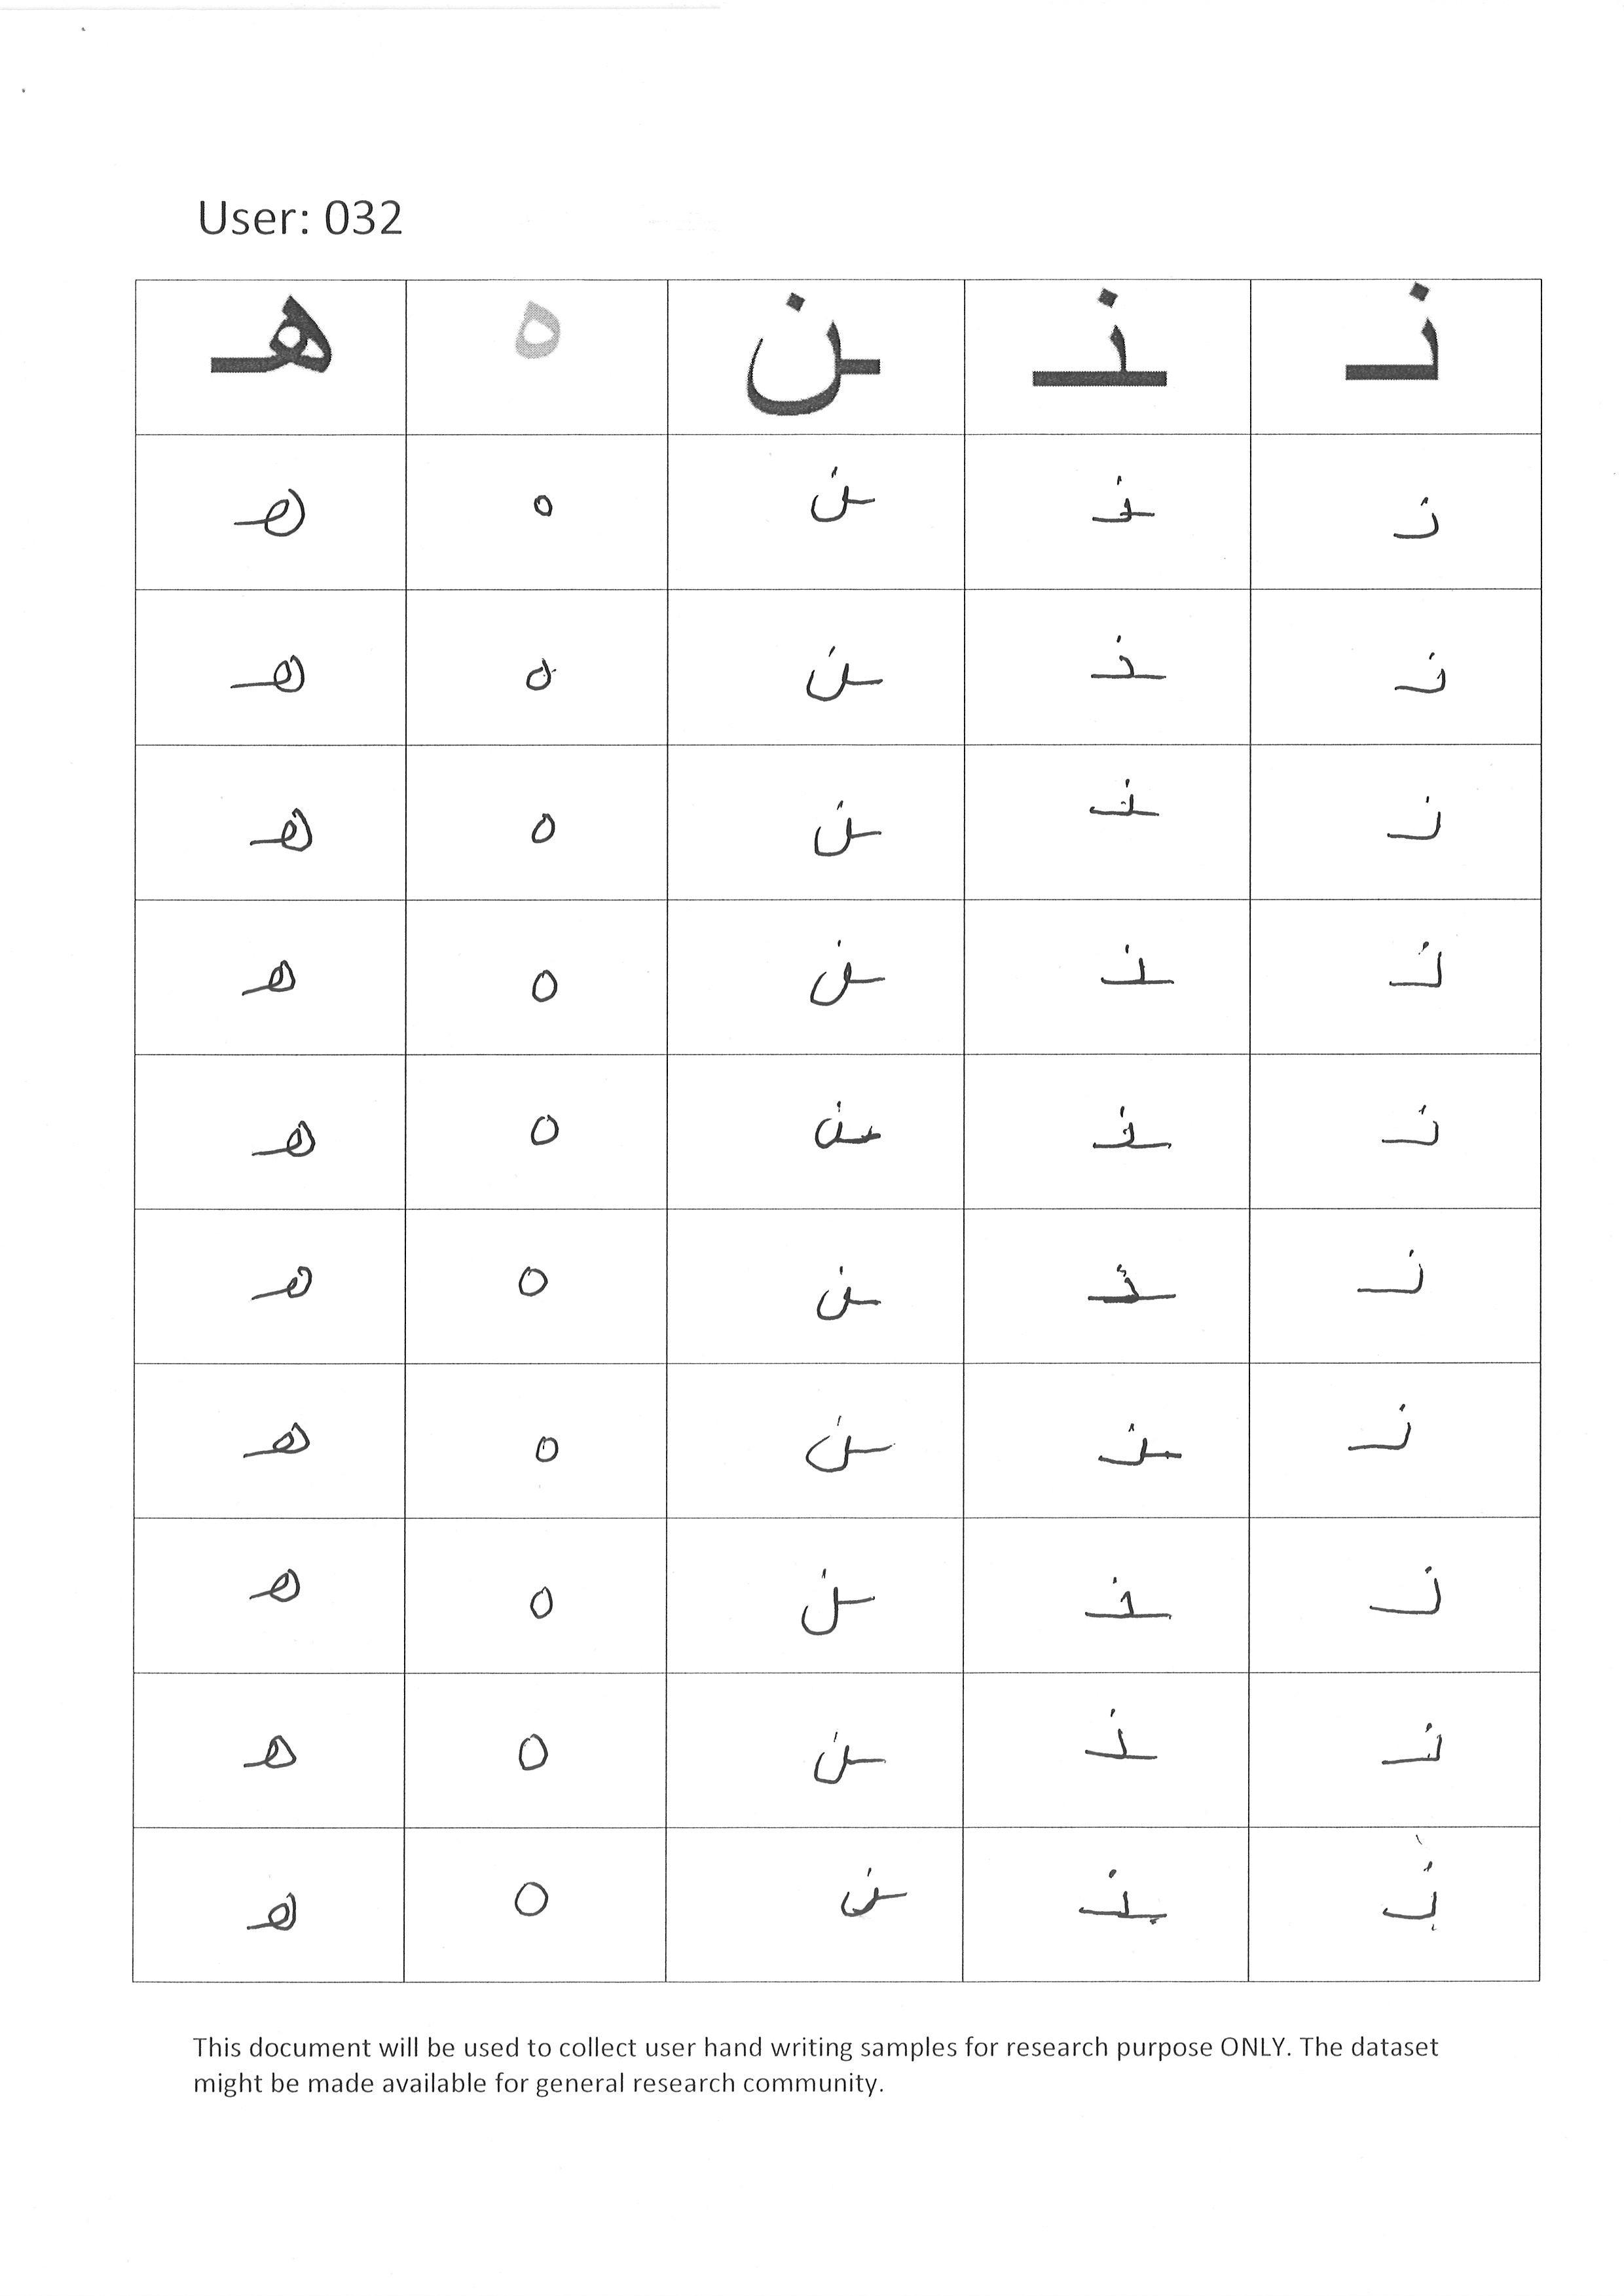 User: 032
نـ ـنـ ـن ه هـ
نـ ـنـ ـن ه هـ
نـ ـنـ ـن ه هـ
نـ ـنـ ـن ه هـ
نـ ـنـ ـن ه هـ
نـ ـنـ ـن ه هـ
نـ ـنـ ـن ه هـ
نـ ـنـ ـن ه هـ
نـ ـنـ ـن ه هـ
نـ ـنـ ـن ه هـ
نـ ـنـ ـن ه هـ
This document will be used to collect user hand writing samples for research purpose ONLY. The dataset
might be made available for general research community.